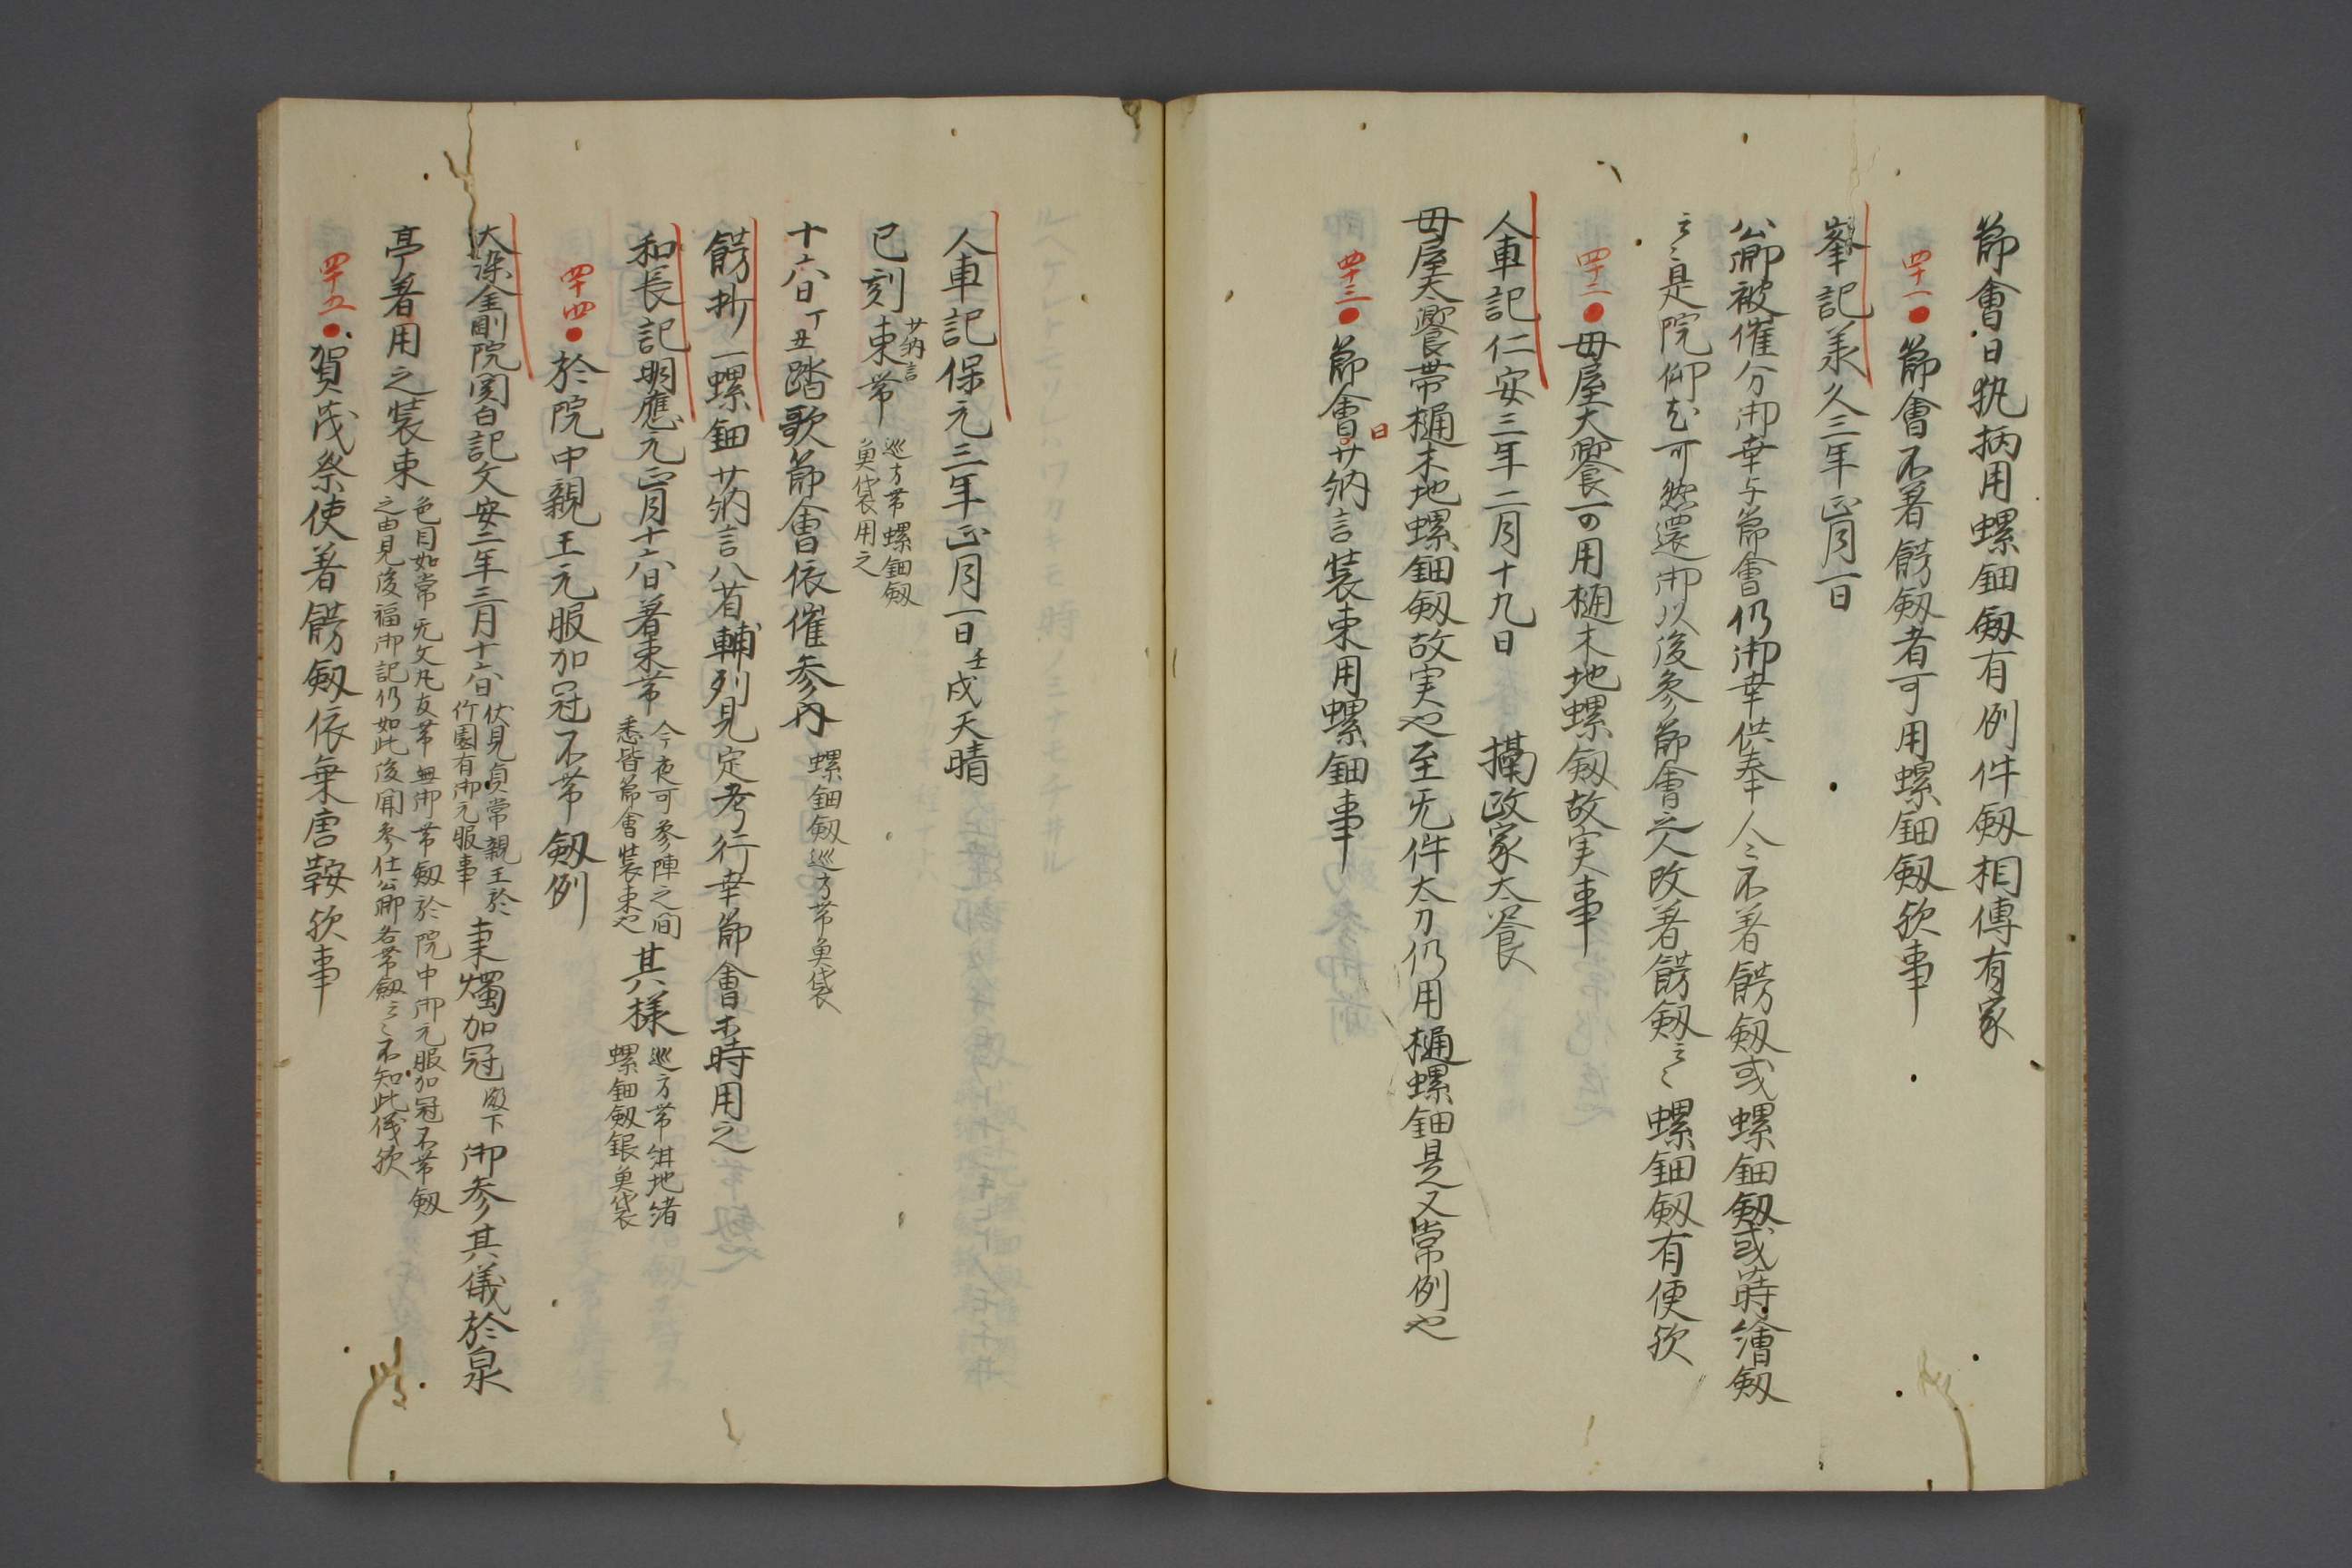 節會日執柄用螺鈿剱有例件剱相傳有家
四十一●節會不着餝剱者可用螺鈿剱欤事
峯記承久三年正月一日
公卿被催分御幸与節會仍御幸供奉人〻不著餝剱或螺鈿剱或蒔繪剱
云〻是院仰也可然還御以後参節會之人改著餝剱云〻螺鈿剱有便欤
四十二●母屋大饗可用樋末地螺剱故実事
人車記仁安三年二月十九日 攝政家大饗
母屋大饗帯樋末地螺鈿剱故実也至无件太刀仍用樋螺鈿是又常例也
四十三●節會日少納言装束用螺鈿事
人車記保元三年正月一日壬戌天晴
巳刻少納言束帯巡方帯螺鈿剱
魚袋用之
十六日丁丑踏歌節會依催参内螺鈿剱巡方帯魚袋
餝抄一螺鈿少納言八省輔列見定考行幸節會等時用之
和長記明應元正月十六日著束帯今夜可参陣之間
悉皆節會装束也其様巡方帯紺地緒
螺鈿剱銀魚袋
四十四●於院中親王元服加冠不帯剱例
大染金剛院関白記文安二年三月十六日伏見貞常親王於
竹園有御元服事秉燭加冠殿下御参其儀於泉
亭著用之装束色目如常无文丸友帯無御帯剱於院中御元服加冠不帯剱
之由見後福御記仍如此後聞参仕公卿各帯剱云〻不知此儀欤
四十五●賀茂祭使著餝剱依乗唐鞍欤事